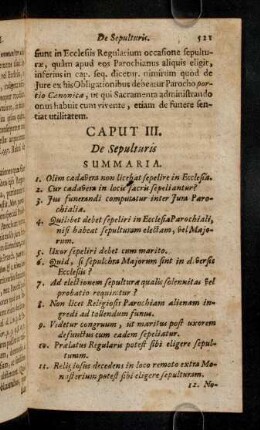 De Sepulturis. 511
fiunt in Ecclesiis Regularium occasione sepultu-
ræ, quàm apud eos Parochianus aliquis eligit,
inferius in cap. seq. dicetur, nimirum quod de
Jure ex his Obligationibus debeatur Parocho por-
tio Canonica, ut qui Sacramenta administrando
onus habuit cum vivente, etiam de funere sen-
tiat utilitatem.
CAPUT III.
De Sepulturis
SUMMARIA.
1. Olim cadavera non licebat sepelire in Ecclesiis.
2. Cur cadavera in locis sacris sepeliantur?
3. Jus funerandi computatur inter Jura Paro-
chialia.
4. Quilibet debet sepeliri in Ecclesia Parochiali,
nisi habeat sepulturam electam, vel Majo-
rum.
5. Uxor sepeliri debet cum marito.
6. Quid, si sepulchra Majorum sint in diversis
Ecclesiis?
7. Ad electionem sepulturæ qualis solemnitas vel
probatio requiratur?
8. Non licet Religiosis Parochiam alienam in-
gredi ad tollendum funus.
9. Videtur congruum, ut maritus post uxorem
defunctus cum eadem sepeliatur.
10. Prælatus Regularis potest sibi eligere sepul-
turam.
11. Religiosus decedens in loco remoto extra Mo-
nasterium potest sibi eligere sepulturam.
12. No-